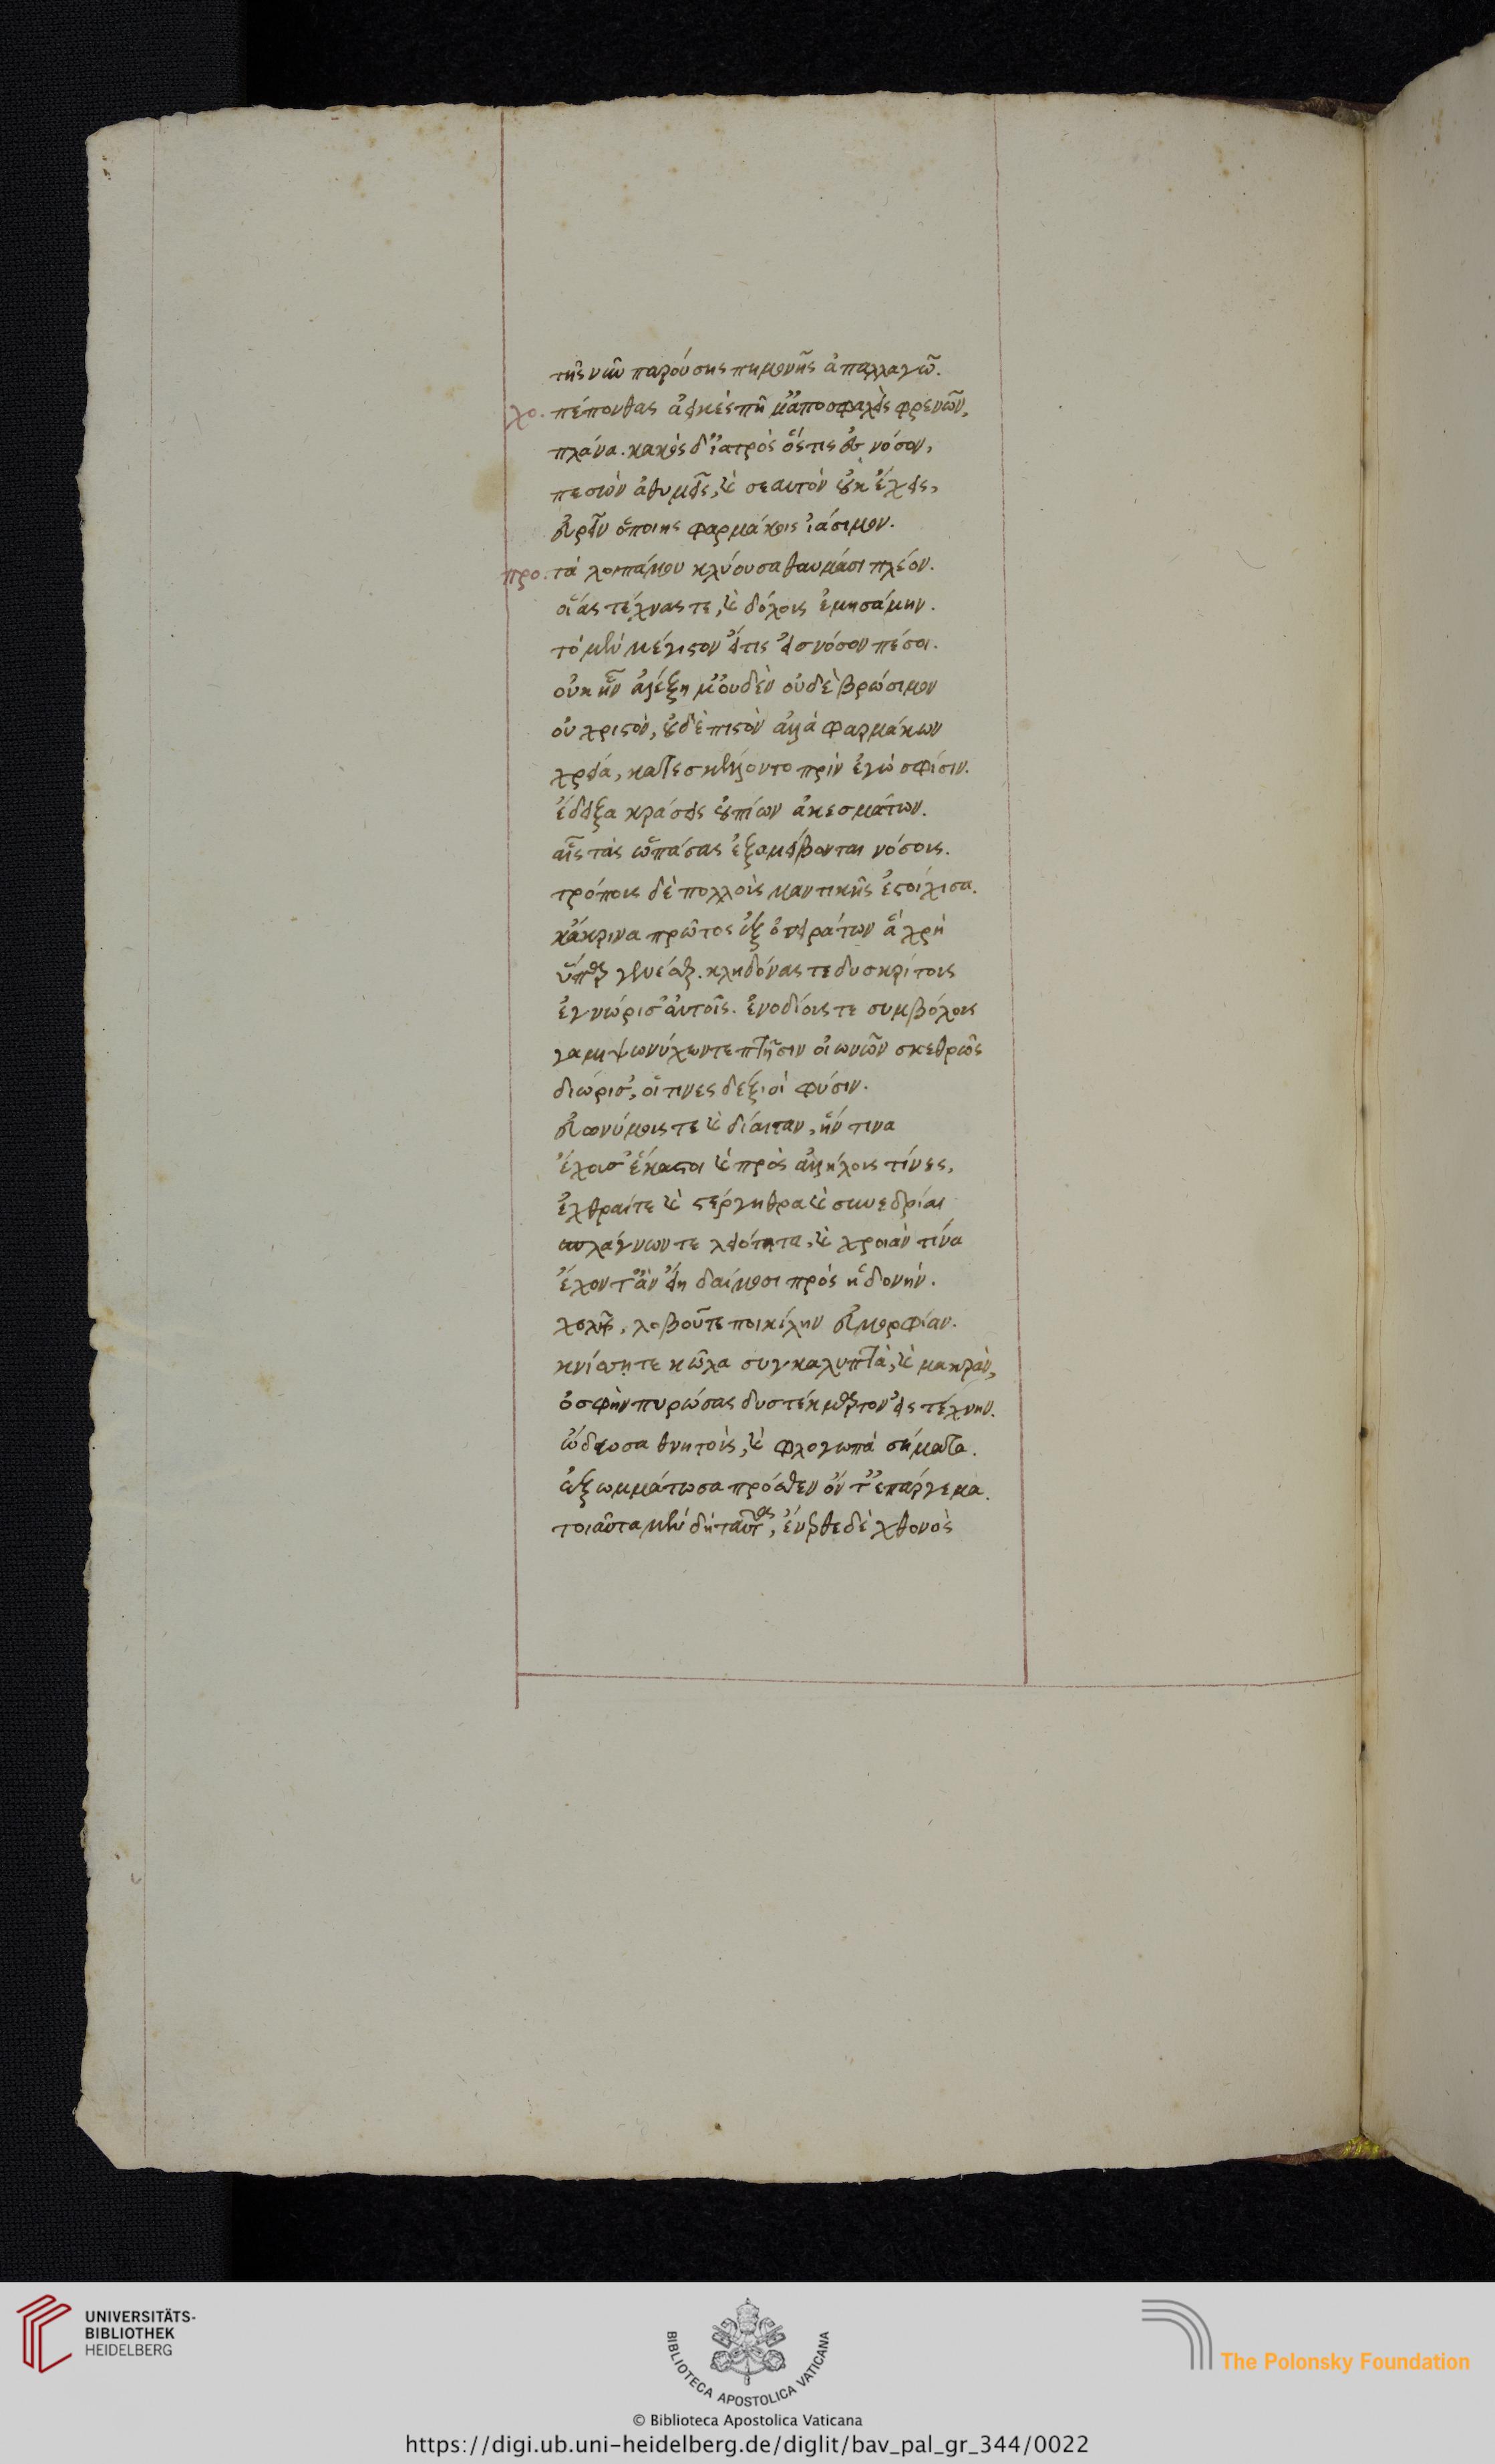 τῆς νῦν παρούσης πημονῆς ἀπαλλαγῶ.
χο. πέπονθας ἀεικὲς πῆμ᾽ ἀποσφαλεὶς φρενῶν,
πλάνα. κακὸς δ᾽ ἰατρὸς ὥς τις ἐς νόσον,
πεσὼν ἀθυμεῖς, καὶ σεαυτὸν οὐκ ἔχεις,
εὑρεῖν ὁποίοις φαρμάκοις ἰάσιμον.
προ. τὰ λοιπά μου κλύουσα θαυμάσῃ πλέον.
οἵας τέχνας τε, καὶ δόλους ἐμησάμην.
τὸ μὲν μέγιστον εἴ τις εἰς νόσον πέσοι.
οὐκ ἦν ἀλέξημ᾽ οὐδὲν οὐδὲ βρώσιμον
οὐ χριστὸν, οὐδὲ πιστὸν ἀλλὰ φαρμάκων
χρείᾳ, κατεσκέλλοντο πρίν ἐγὼ σφίσιν.
ἔδειξα κράσεις ἠπίων ἀκεσμάτων.
αἷς τὰς ἁπάσας ἐξαμείβονται νόσους.
τρόπους δὲ πολλοὺς μαντικῆς ἐστοίχισα.
κἄκρινα πρῶτος ἐξ ὀνειράτων ἃ χρὴ
ὕπαρ γενέσθαι. κληδόνας τε δυσκρίτους
ἐγνώρισ᾽ αὐτοῖς. ἐνοδίους τε συμβόλους
γαμψωνύχων τε πτῆσιν οἰωνῶν σκεθρῶς
διώρισ᾽, οἵ τινες δεξιοὶ φύσιν.
εὐωνύμους τε καὶ δίαιταν, ἥν τινα
ἔχουσ᾽ ἕκαστοι καὶ πρὸς ἀλλήλους τίνες,
ἔχθραι τε καὶ στέργηθρα καὶ συνεδρίαι
σπλάγχνων τε λειότητα, καὶ χροιὰν τίνα
ἔχοντ᾽ ἂν εἴη δαίμοσι πρὸς ἡδονήν.
χολῆς, λοβοῦ τε ποικίλην εὐμορφίαν.
κνίσῃ τε κῶλα συγκαλυπτὰ, καὶ μακρὰν,
ὀσφὺν πυρώσας δυστέκμαρτον εἰς τέχνην.
ὥδωσα θνητοὺς, καὶ φλογωπὰ σήματα.
ἐξωμμάτωσα πρόσθεν ὄντ᾽ ἐπάργεμα.
τοιαῦτα μὲν δὴ ταῦτ᾽, ἔνερθε δὲ χθονὸς
UNIVERSITÄTS-
BIBLIOTHEK
HEIDELBERG
BIBLIOTECA APOSTOLICA VATICANA
The Polonsky Foundation
© Biblioteca Apostolica Vaticana
https://digi.ub.uni-heidelberg.de/diglit/bav_pal_gr_344/0022